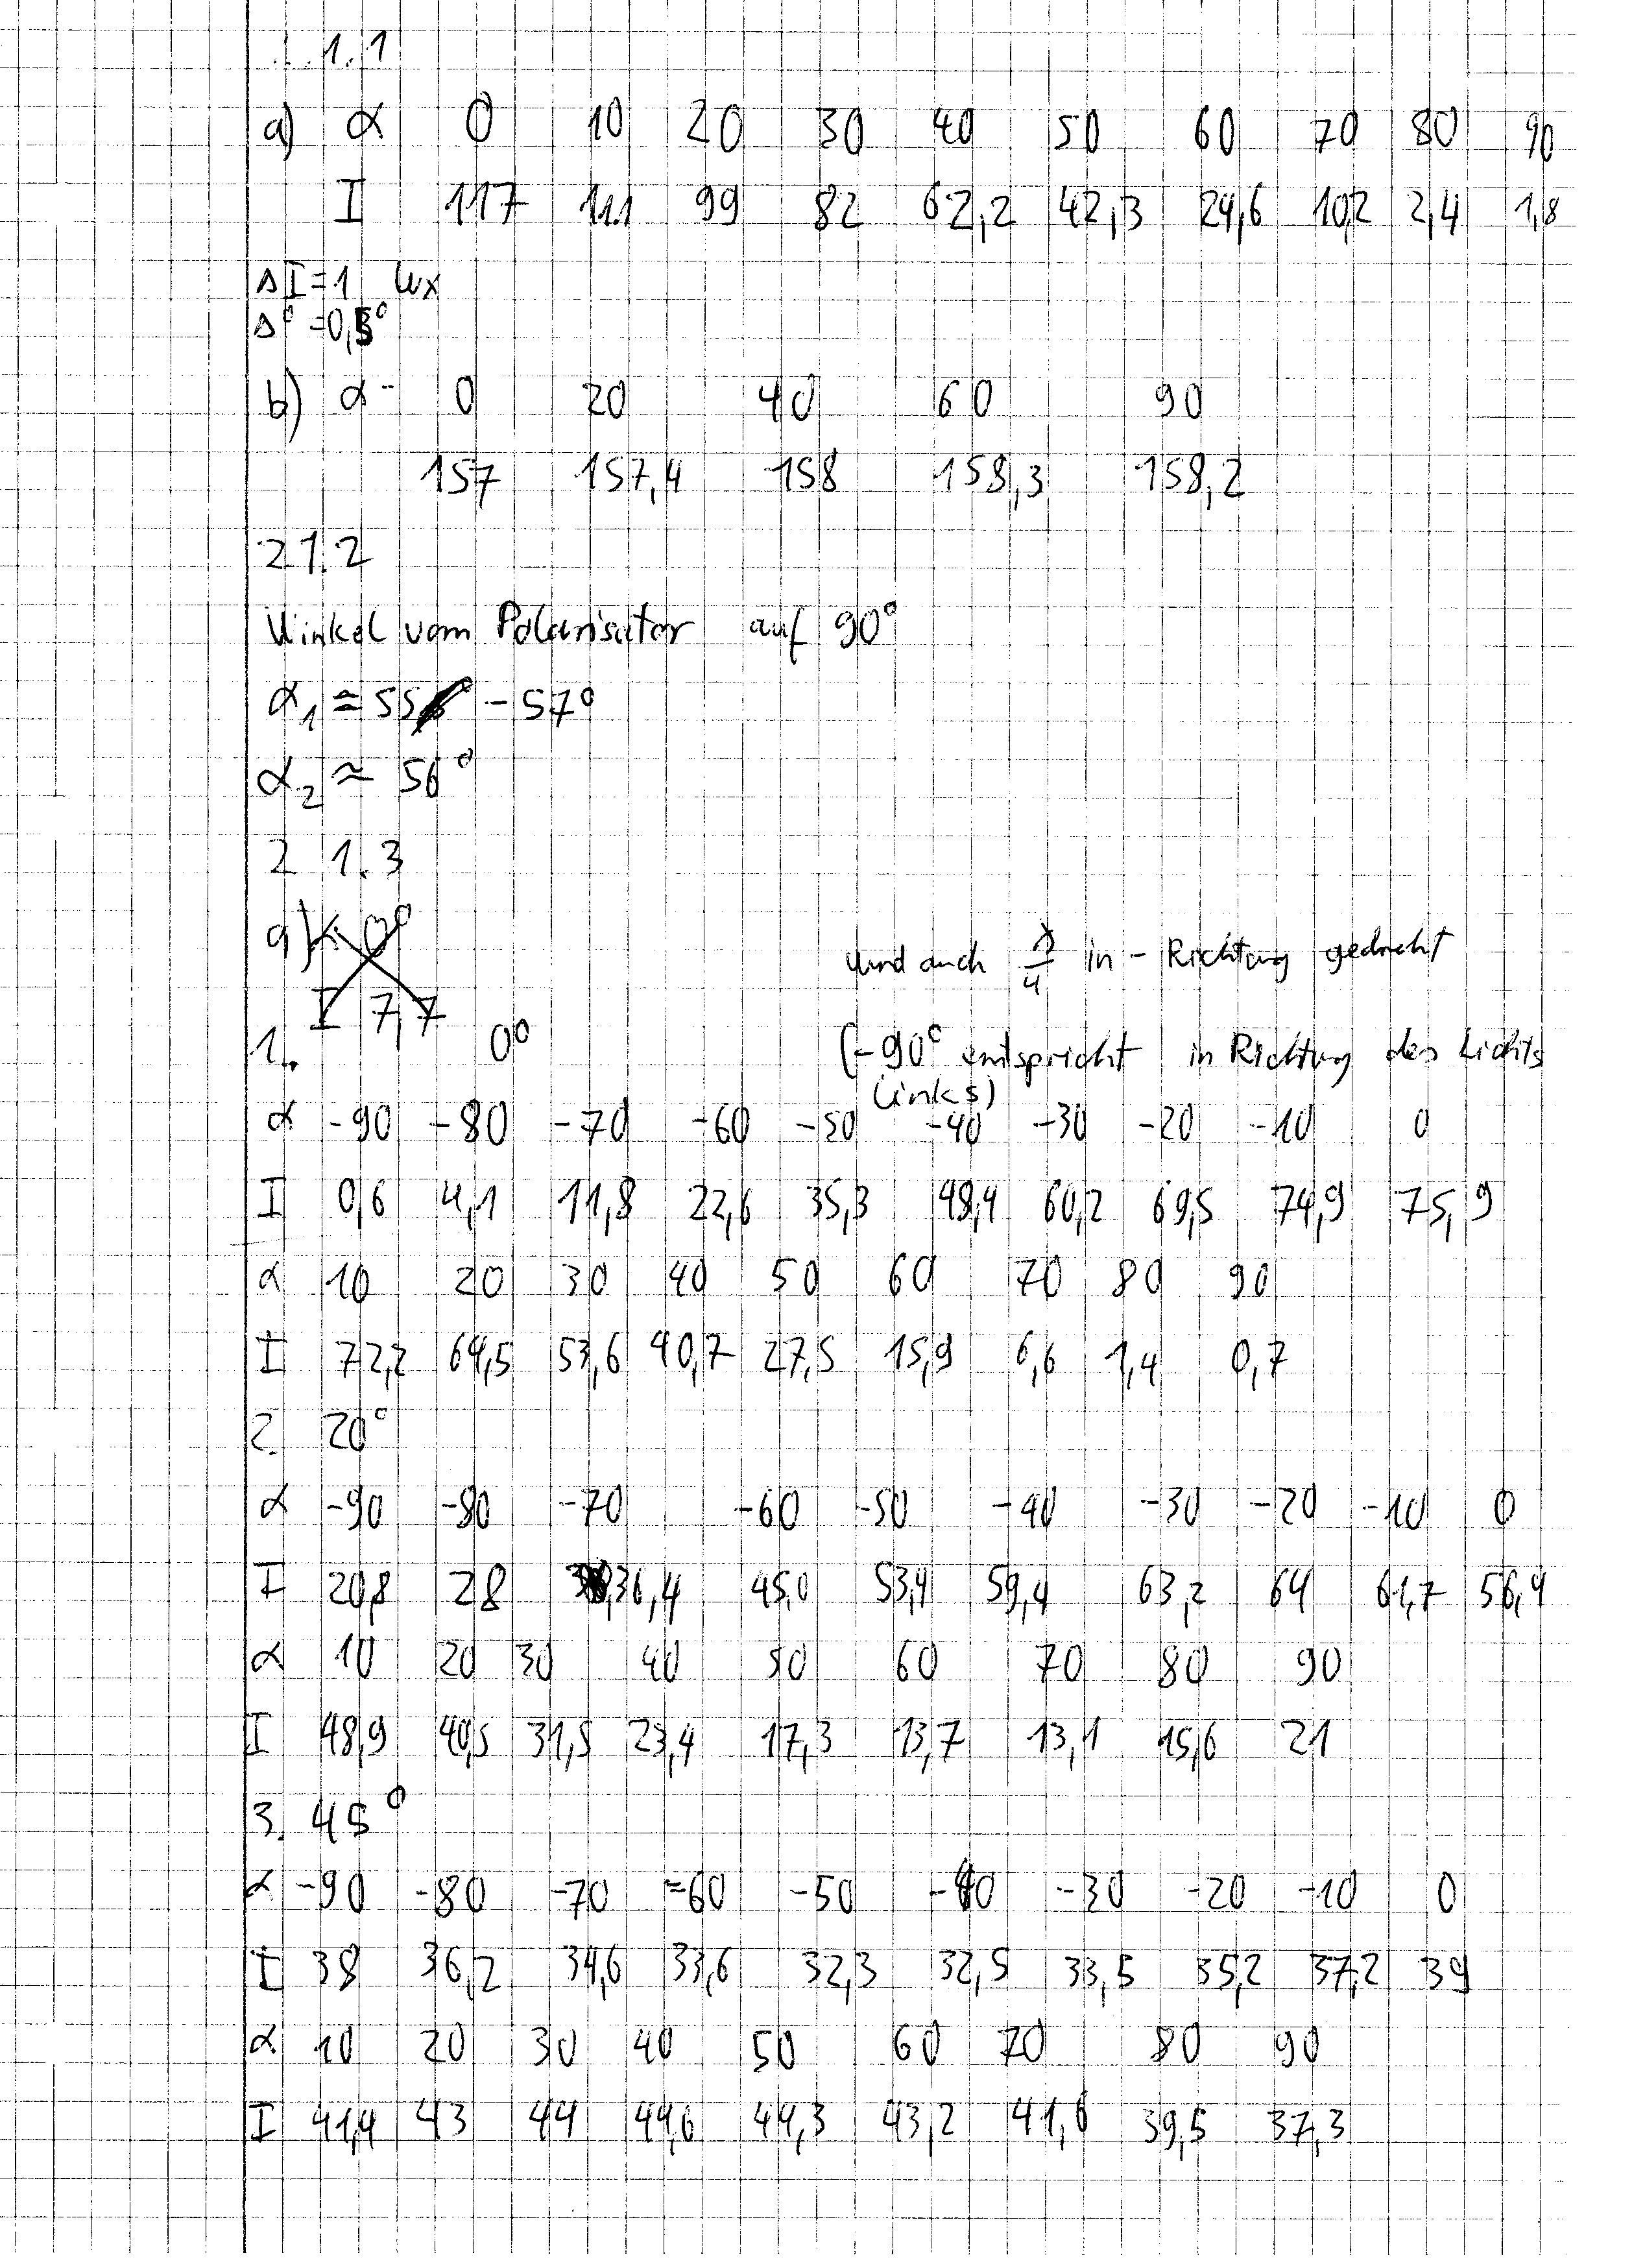 1.1
a) α 0 10 20 30 40 50 60 70 80 90
I 117 111 99 82 62,2 42,3 24,6 10,2 2,4 1,8
ΔI=1 lux
Δ°=0,5°
b) α 0 20 40 60 90
157 157,4 158 158,3 158,2
2 1.2
Winkel vom Polarisator auf 90°
α₁ ≈ 55 - 57°
α₂ ≈ 56°
2 1.3
a) α 0°
und auch λ/4 in - Richtung gedreht
I 7,7
1. 0°
(-90° entspricht in Richtung des Lichts
links)
α -90 -80 -70 -60 -50 -40 -30 -20 -10 0
I 0,6 4,1 11,8 22,6 35,3 48,4 60,2 69,5 74,9 75,9
α 10 20 30 40 50 60 70 80 90
I 72,2 64,5 53,6 40,7 27,5 15,9 6,6 1,4 0,7
2. 20°
α -90 -80 -70 -60 -50 -40 -30 -20 -10 0
I 20,8 28 36,4 45,0 53,4 59,4 63,2 64 61,7 56,4
α 10 20 30 40 50 60 70 80 90
I 48,9 40,5 31,5 23,4 17,3 13,7 13,1 15,6 21
3. 45°
α -90 -80 -70 -60 -50 -40 -30 -20 -10 0
I 38 36,2 34,6 33,6 32,3 32,5 33,5 35,2 37,2 39
α 10 20 30 40 50 60 70 80 90
I 41,4 43 44 44,6 44,3 43,2 41,6 39,5 37,3